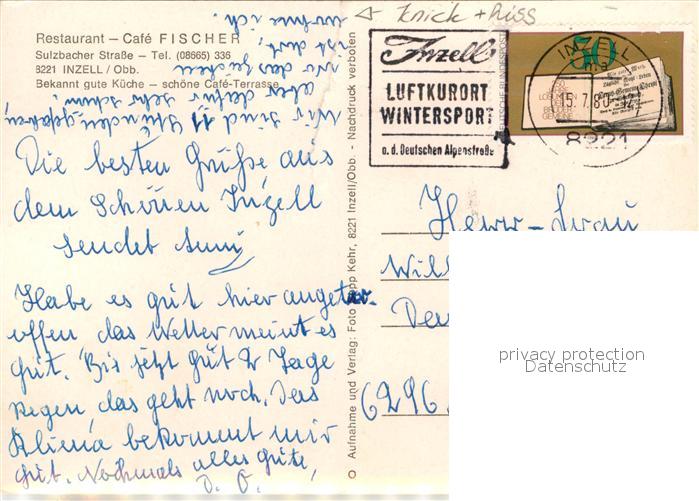 Restaurant – Café FISCHER
Sulzbacher Straße – Tel. (08665) 336
8221 INZELL / Obb.
Bekannt gute Küche – schöne Café-Terrasse
Die besten Grüße aus
dem Schönen Inzell
sendet
Habe es gut hier angetr-
offen das Wetter meint es
gut. Bis jetzt gut 2 Tage
Regen das geht noch. Das
Klima bekommt mir
gut. Nochmals alles Gute,
D. O.
Wir sind 11 Stunden gefahren,
aber dafür sehr schön.
wo das Zeichen
ist dort,
wohne ich.
Knick + Riss
Aufnahme und Verlag: Foto Kehr, 8221 Inzell/Obb. - Nachdruck verboten
Inzell
LUFTKURORT
WINTERSPORT
a. d. Deutschen Alpenstraße
DEUTSCHE BUNDESPOST
50
INZELL
15.7.80-12
8221
Herr – Frau
Will
6296
privacy protection
Datenschutz